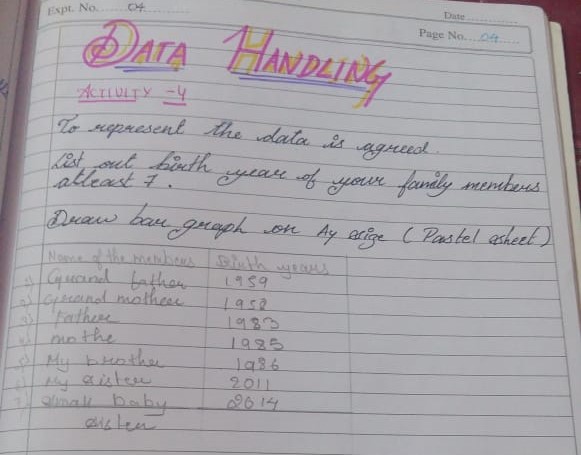 Expt. No. 04
Date
Page No. 04
DATA HANDLING
ACTIVITY -4
To represent the data is agreed.
List out birth year of your family members
atleast 7.
Draw bar graph on A4 size (Pastel sheet)
Name of the members Birth years
1) Grand father 1959
2) Grand mother 1958
3) Father 1983
4) mothe 1985
5) My brother 1986
6) My sister 2011
7) small baby 2014
sister